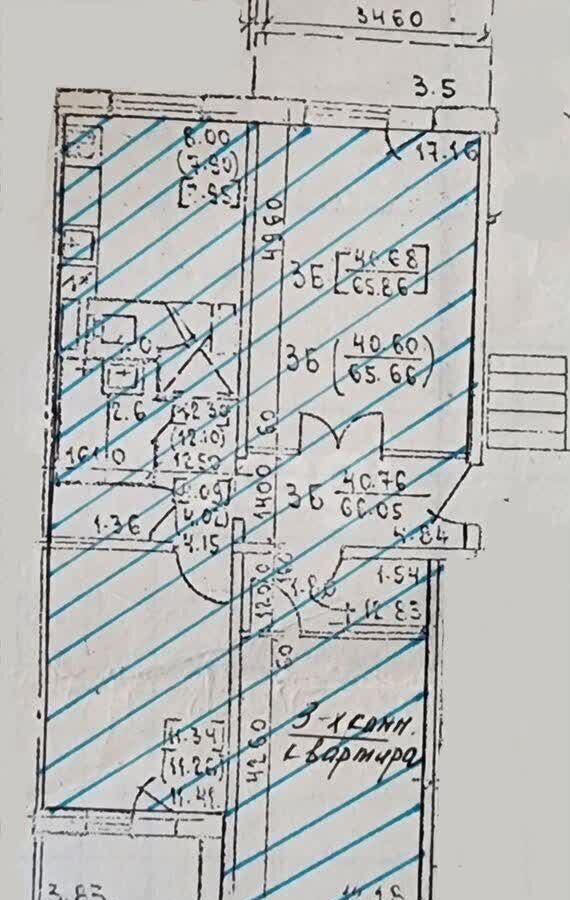 3460
3.5
8.00
(7.90)
[7.95]
17.16
4960
3Б [40.68
65.86]
3Б (40.60
65.66)
2.6
[12.30]
(12.10)
12.50
60
1610
[4.09]
(4.02)
4.15
1400
3Б 40.76
66.05
1.36
4.84
1.54
12.83
60
[11.34]
(11.26)
11.41
4260
3-х комн.
квартира
3.83